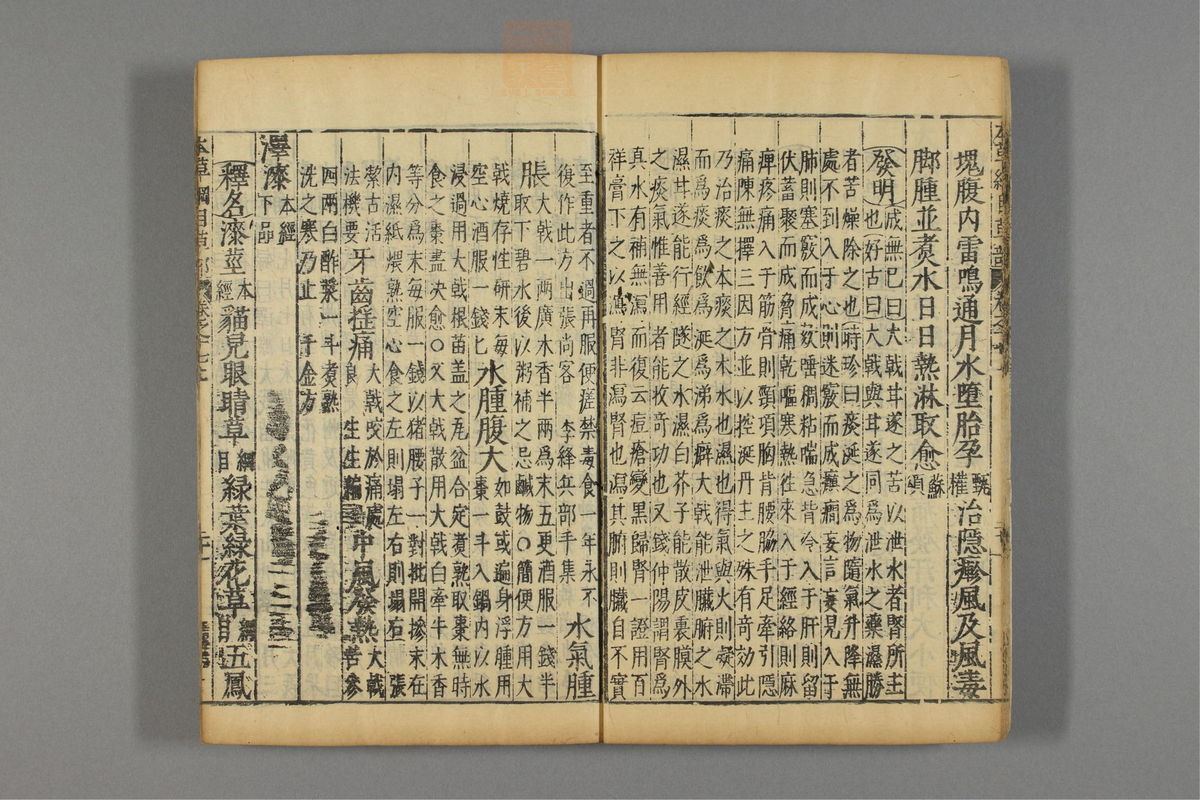 塊腹內雷鳴通月水墮胎孕甄權治隱瘮風及風毒
脚腫並煮水日日熱淋取愈蘇頌
發明成無已曰大戟甘遂之苦以泄水者腎所主
也好古曰大戟與甘遂同爲泄水之藥濕勝
者苦燥除之也時珍曰痰涎之爲物隨氣升降無
處不到入于心則迷竅而成癲癇妄言妄見入于
肺則塞竅而成欬唾稠粘喘急背冷入于肝則留
伏蓄聚而成脅痛乾嘔寒熱徃來入于經絡則麻
痺疼痛入于筋骨則頸項胸背腰脇手足牽引隱
痛陳無擇三因方並以控涎丹主之殊有奇效此
乃治痰之本痰之本水也濕也得氣與火則凝滯
而爲痰爲飲爲涎爲涕爲癖大戟能泄臟腑之水
濕甘遂能行經隧之水濕白芥子能散皮裏膜外
之痰氣惟善用者能收奇功也又錢仲陽謂腎爲
真水有補無瀉而復云痘瘡變黑歸腎一證用百
祥膏下之以瀉腎非瀉腎也瀉其腑則臟自不實
至重者不過再服便瘥禁毒食一年永不
復作此方出張尚客李絳兵部手集水氣腫
脹大戟一兩廣木香半兩爲末五更酒服一錢半
取下碧水後以粥補之忌鹹物○簡便方用大
戟燒存性研末每
空心酒服一錢匕水腫腹大如鼓或遍身浮腫用
棗一斗入鍋内以水
浸過用大戟根苗盖之瓦盆合定煮熟取棗無時
食之棗盡决愈○又大戟散用大戟白牽牛木香
等分爲末每服一錢以猪腰子一對批開摻末在
内濕紙煨熟空心食之左則塌左右則塌右張
潔古活
法機要牙齒揺痛大戟咬於痛處
良生生編中風發熱大戟苦參
四兩白酢漿一斗煮熟
洗之寒乃止千金方
澤漆本經
下品
釋名漆莖本
經貓兒眼睛草綱
目綠葉綠花草綱
目五鳳